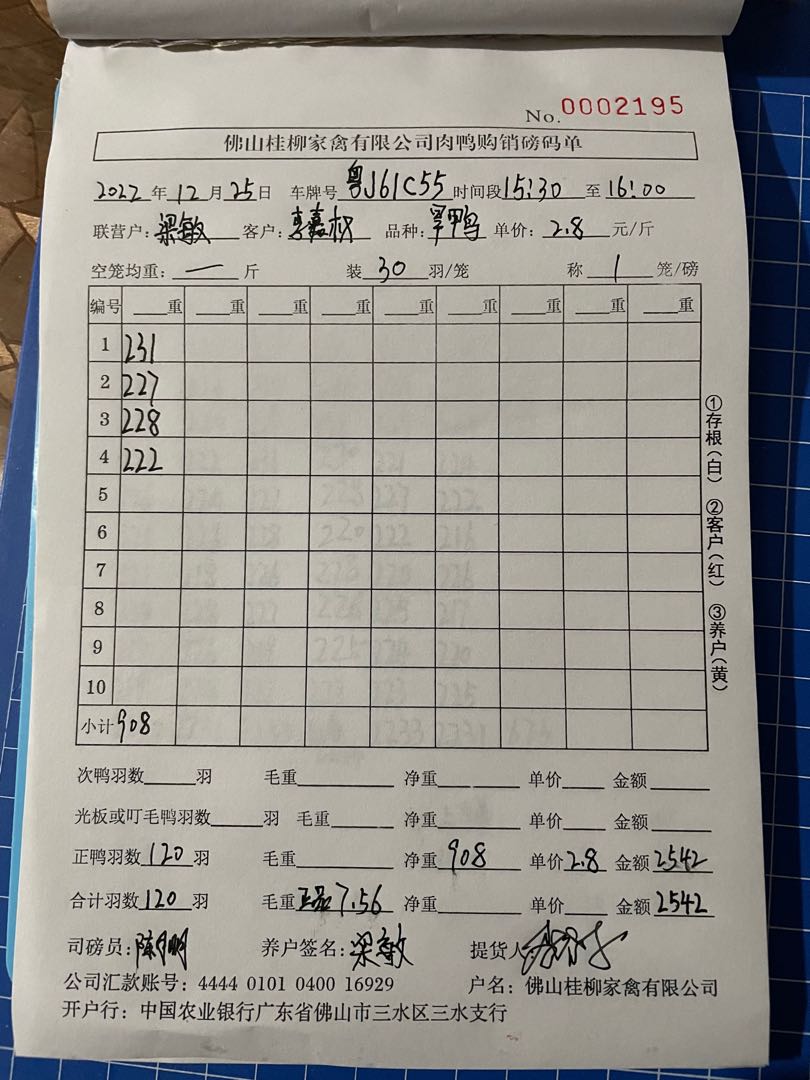 No.0002195
佛山桂柳家禽有限公司肉鸭购销磅码单
2022年12月25日 车牌号粤J61C55时间段15:30至16:00
联营户:梁敏 客户:李嘉权 品种:罕鸭 单价:2.8元/斤
空笼均重:一斤 装30羽/笼 称1笼/磅
编号 重 重 重 重 重 重 重 重 重
1 231
2 227
3 228
4 222
5
6
7
8
9
10
小计908
①存根(白) ②客户(红) ③养户(黄)
次鸭羽数 羽 毛重 净重 单价 金额
光板或叮毛鸭羽数 羽 毛重 净重 单价 金额
正鸭羽数120羽 毛重 净重908 单价2.8 金额2542
合计羽数120羽 毛重 7.56 净重 单价 金额2542
司磅员: 养户签名:梁敏 提货人
公司汇款账号:4444 0101 0400 16929 户名:佛山桂柳家禽有限公司
开户行:中国农业银行广东省佛山市三水区三水支行